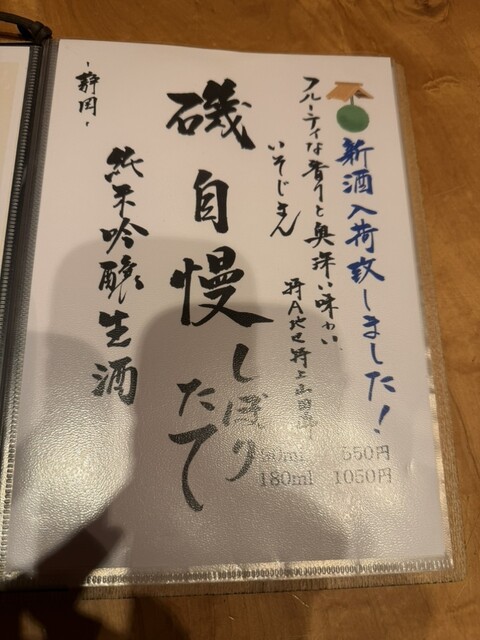 新酒入荷致しました！
フルーティな香りと奥深い味わい
特A地区特上山田錦
いそじまん
磯自慢
しぼり
たて
純米吟醸生酒
-静岡-
550円
180ml 1050円